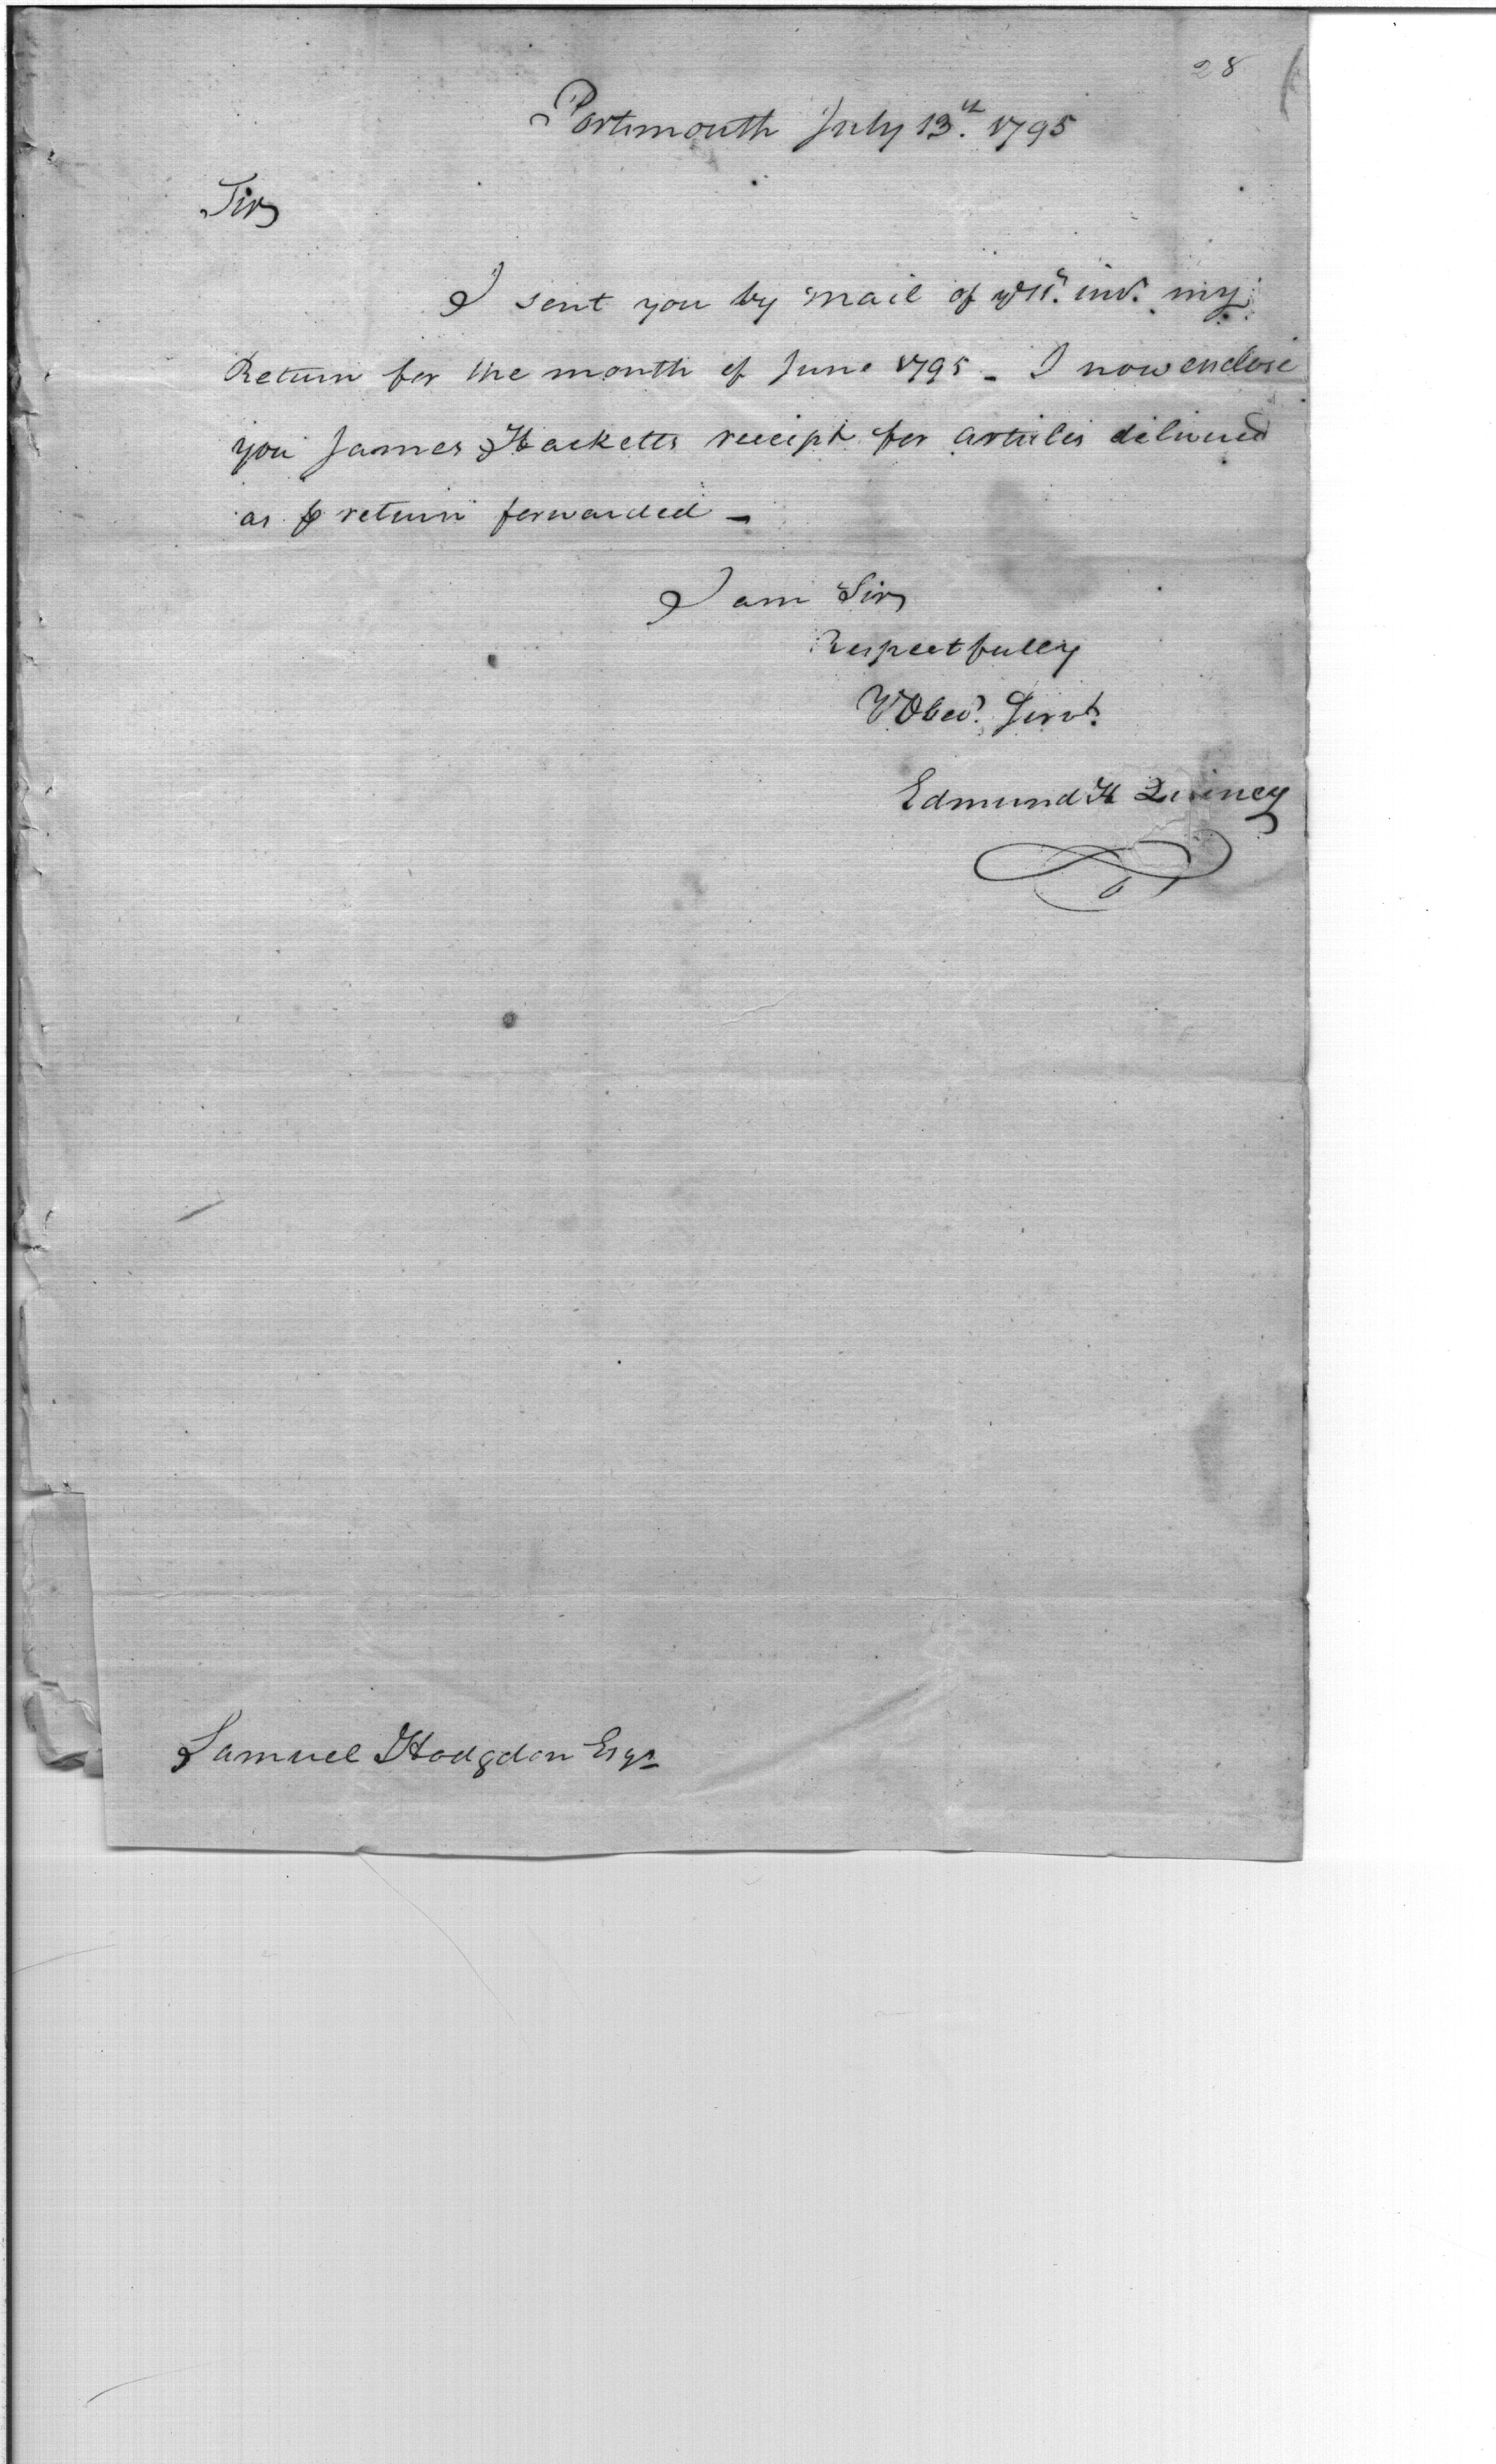 28
Portsmouth July 13th. 1795
Sir
I sent you by mail of inst. my
Return for the month of June 1795 - I now enclose
you James Hacketts receipt for articles delivered
as ⅌ return forwarded -
I am Sir
Respectfully
Y Obed. Servt.
Edmund H Quincy
Samuel Hodgdon Esqr